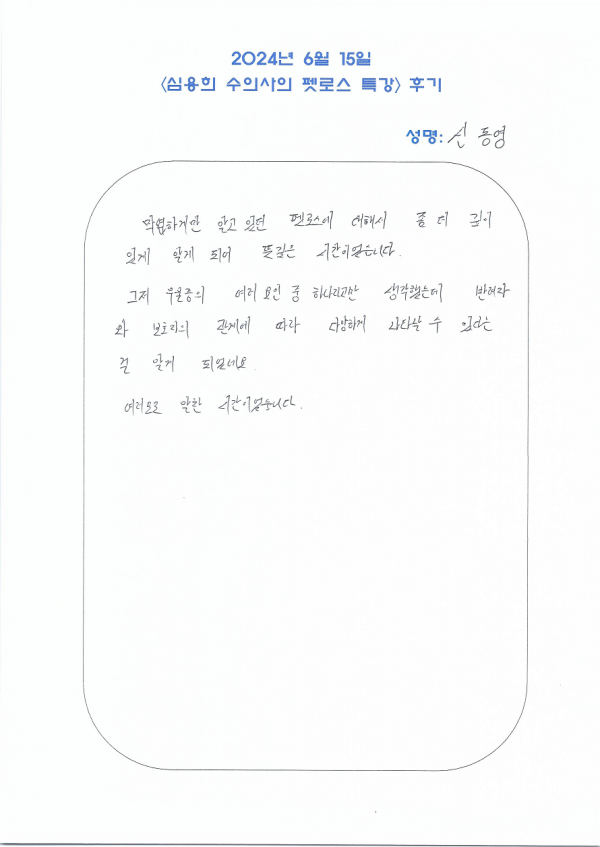 2024년 6월 15일
<심용희 수의사의 펫로스 특강> 후기
성명: 신 동영
막연하게만 알고 있던 펫로스에 대해서 좀 더 깊이
있게 알게 되어 뜻깊은 시간이었습니다.
그저 우울증의 여러 요인 중 하나라고만 생각했는데 반려자
와 보호자의 관계에 따라 다양하게 나타날 수 있다는
걸 알게 되었네요.
여러모로 알찬 시간이었습니다.